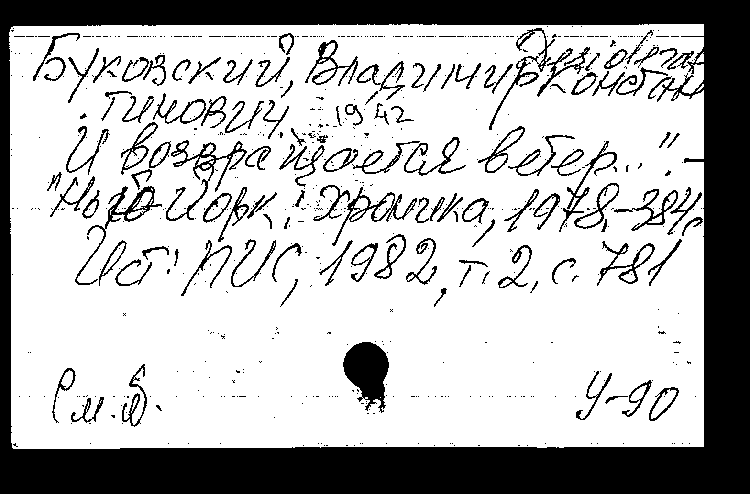 Desiderat
Буковский, Владимир Констан
тинович. 1942
И возвращается ветер...". –
"Нью-Йорк: Хроника, 1978.-384с
Ист: РИС, 1982, т. 2, с. 781
См. б. У-90